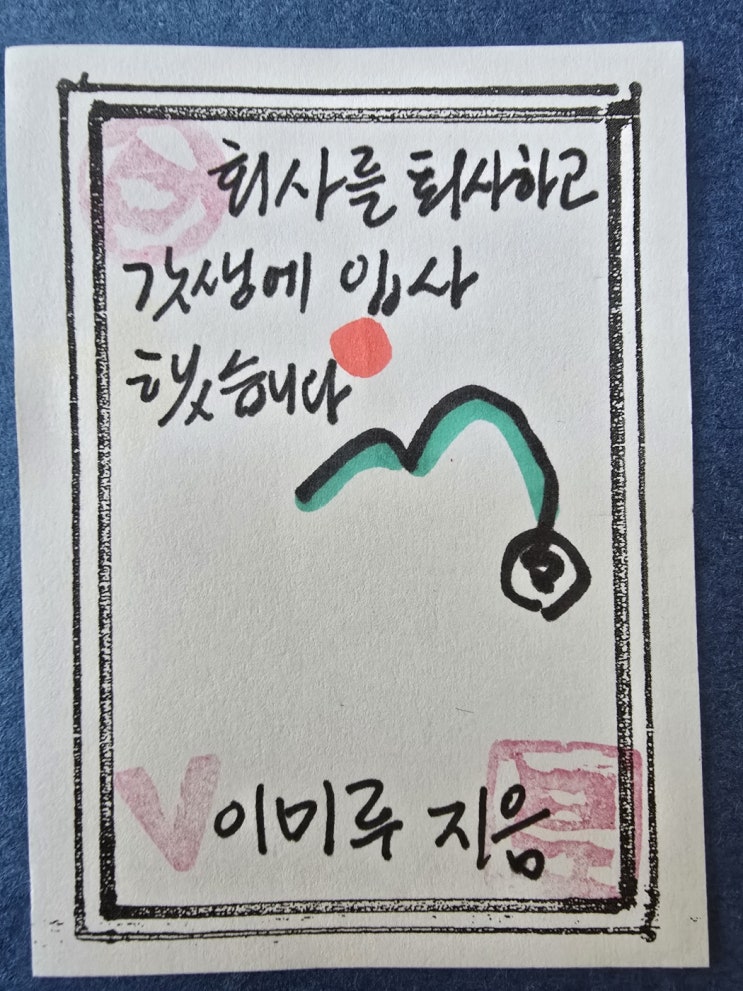 회사를 퇴사하고
갓생에 입사
했습니다
이미루 지음